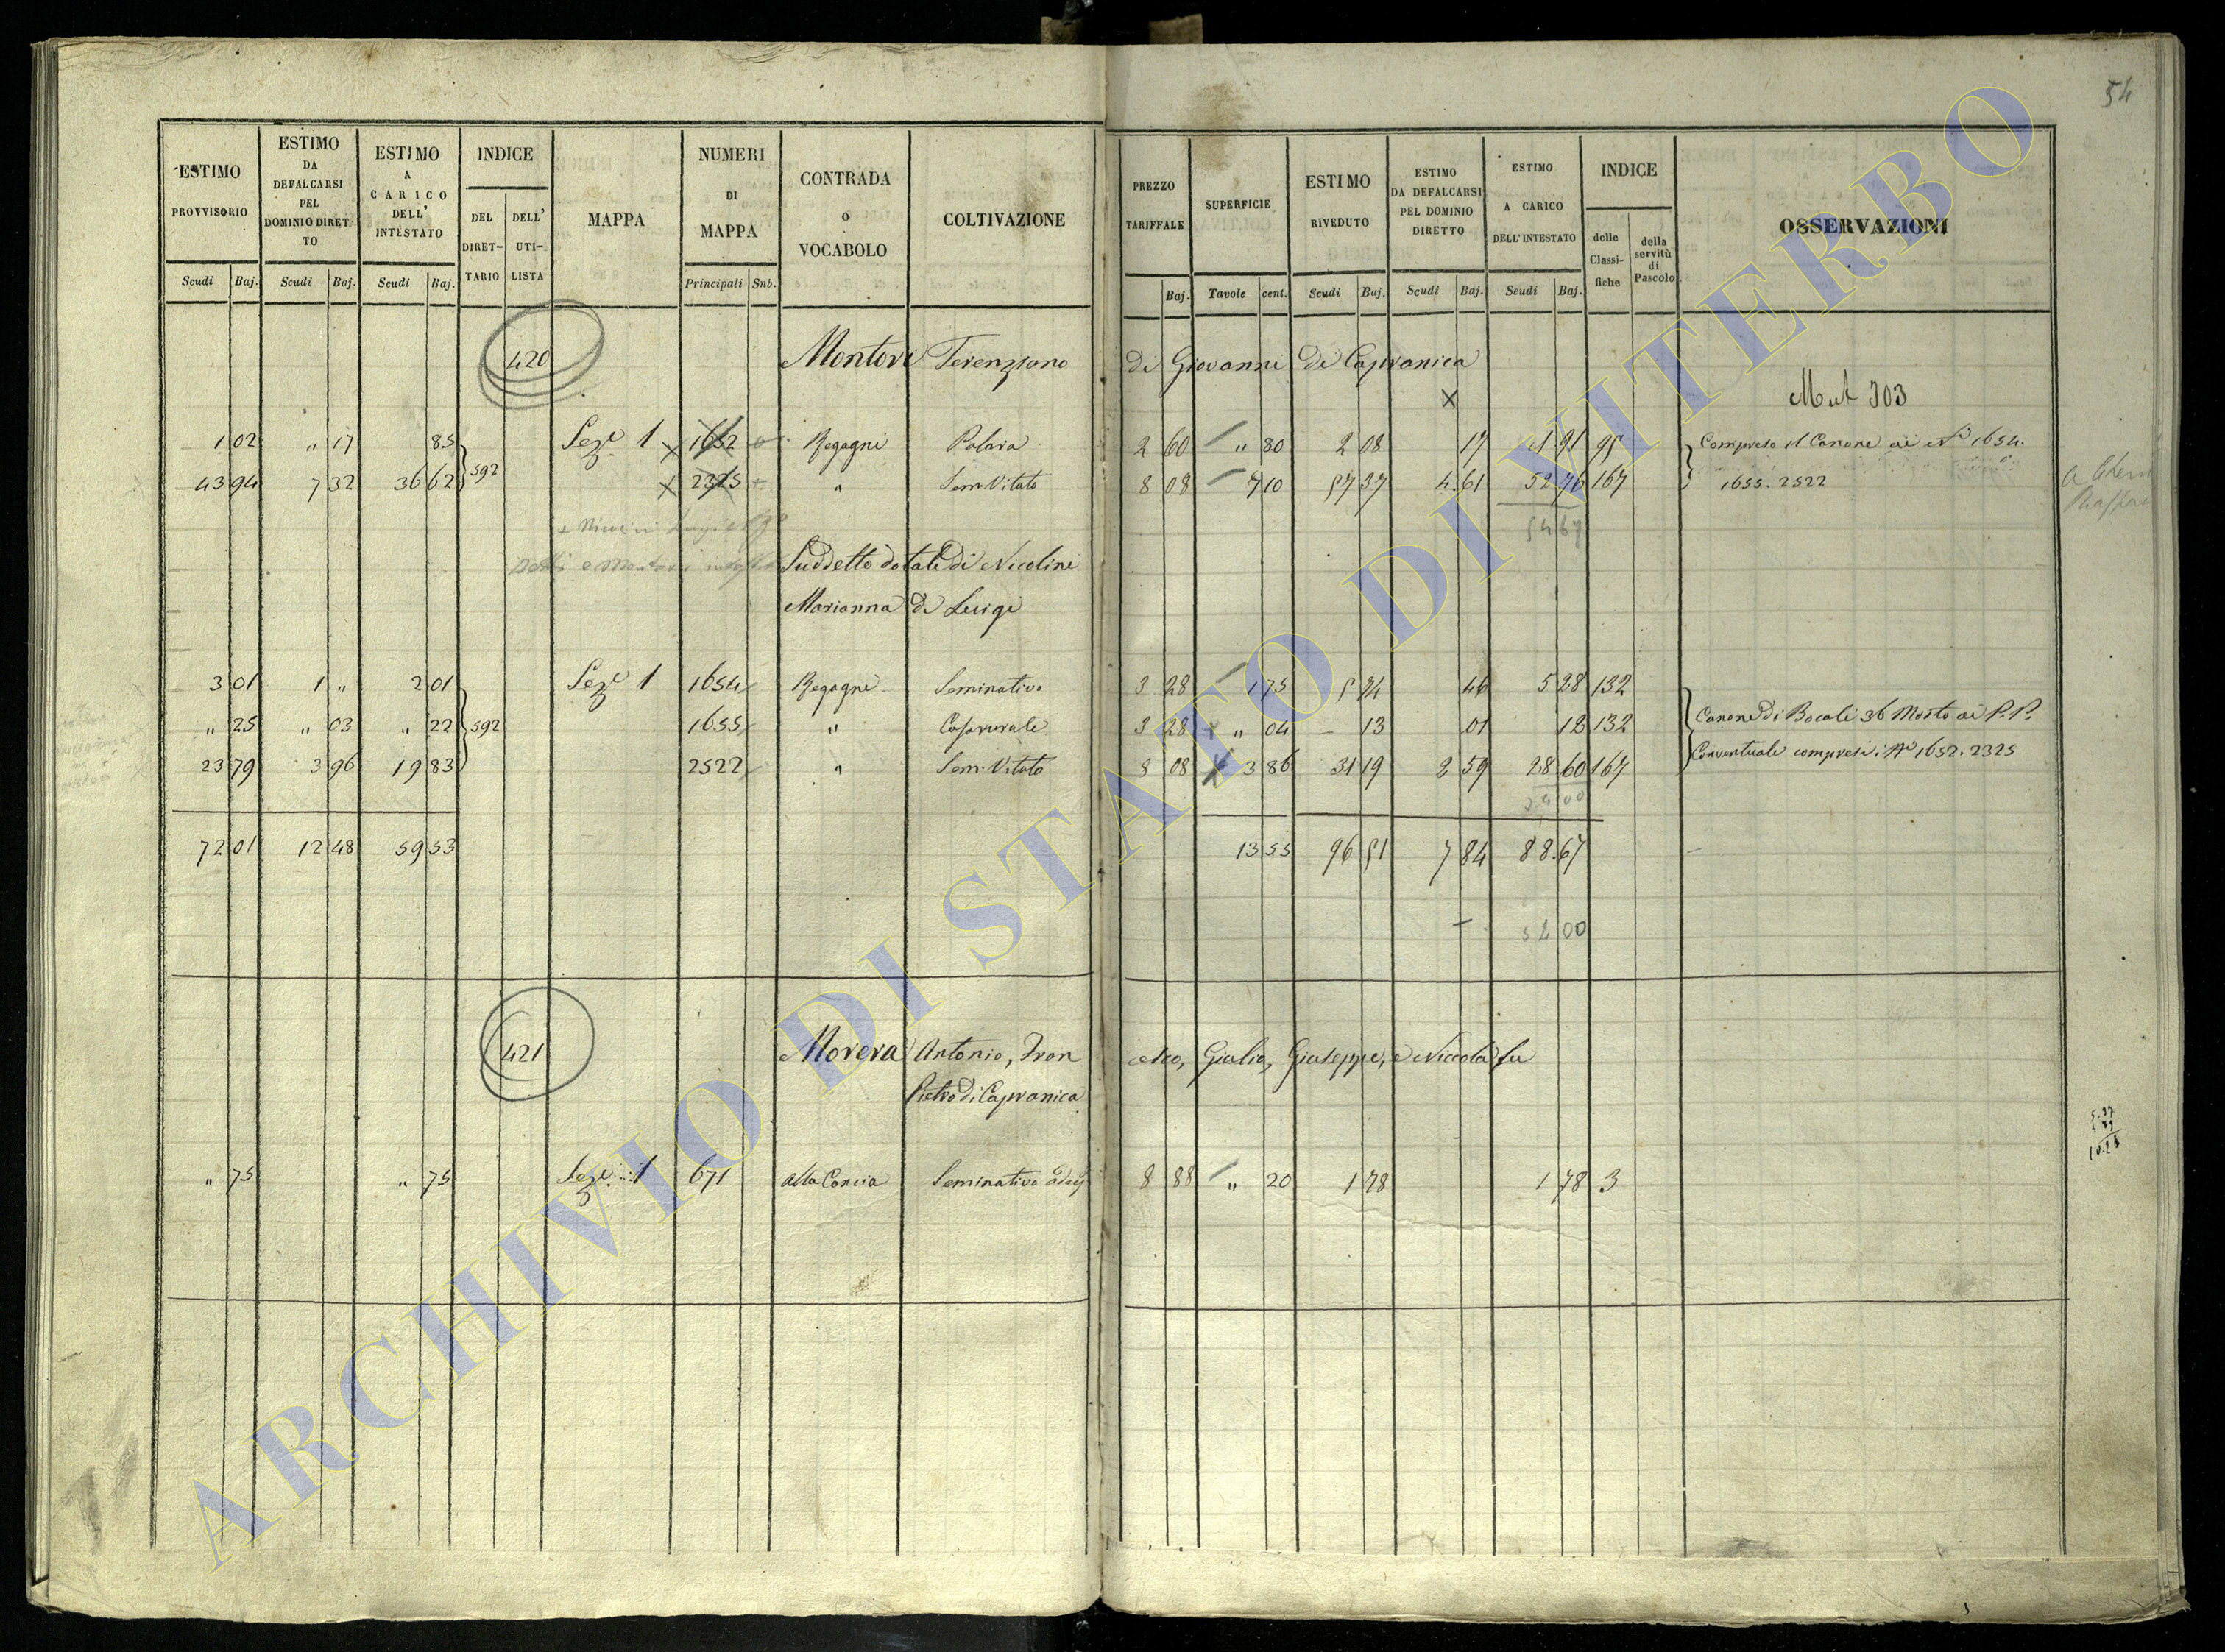 54
ESTIMO PROVVISORIO | ESTIMO DA DEFALCARSI PEL DOMINIO DIRETTO | ESTIMO A CARICO DELL' INTESTATO | INDICE | MAPPA | NUMERI DI MAPPA | CONTRADA o VOCABOLO | COLTIVAZIONE | PREZZO TARIFFALE | SUPERFICIE | ESTIMO RIVEDUTO | ESTIMO DA DEFALCARSI PEL DOMINIO DIRETTO | ESTIMO A CARICO DELL' INTESTATO | INDICE | OSSERVAZIONI
DEL DIRET-TARIO | DELL' UTI-LISTA | delle Classi-fiche | della servitù di Pascolo
Scudi | Baj. | Scudi | Baj. | Scudi | Baj. | Principali | Snb. | Baj. | Tavole | cent. | Scudi | Baj. | Scudi | Baj. | Scudi | Baj.
420 Montori Terenziano di Giovanni di Capranica
Mut 303
1 02 | " 17 | 85 | 592 | Seze 1 | 1652 | Regagni | Polara | 2 60 | " 80 | 2 08 | 17 | 1.91 | 95 | Compreso il Canone ai Ni 1654.
43 94 | 7 32 | 36 62 | 2325 | " | Sem. Vitato | 8 08 | 7 10 | 57 37 | 4.61 | 52 76 | 167 | 1655. 2522
54 67
Suddetto dotale di Nicolini
Marianna di Luigi
3 01 | 1 " | 2 01 | 592 | Seze 1 | 1654 | Regagni | Seminativo | 3 28 | 1 75 | 5 74 | 46 | 5 28 | 132
" 25 | " 03 | " 22 | 1655 | " | Caprurale | 3 28 | " 04 | 13 | 01 | 12 | 132 | Canone di Bocali 36 Mosto ai P.P.
23 79 | 3 96 | 19 83 | 2522 | " | Sem. Vitato | 8 08 | 3 86 | 31 19 | 2 59 | 28 60 | 167 | Conventuali compresi i Ni 1652. 2325
34 00
72 01 | 12 48 | 59 53 | 13 55 | 96 51 | 7 84 | 88.67
34 00
421 Morera Antonio, Fran cesco, Giulio, Giuseppe, e Niccola fu
Pietro di Capranica
" 75 | " 75 | Seze 1 | 671 | alla Concia | Seminativo | 8 88 | " 20 | 1 78 | 1 78 | 3
ARCHIVIO DI STATO DI VITERBO